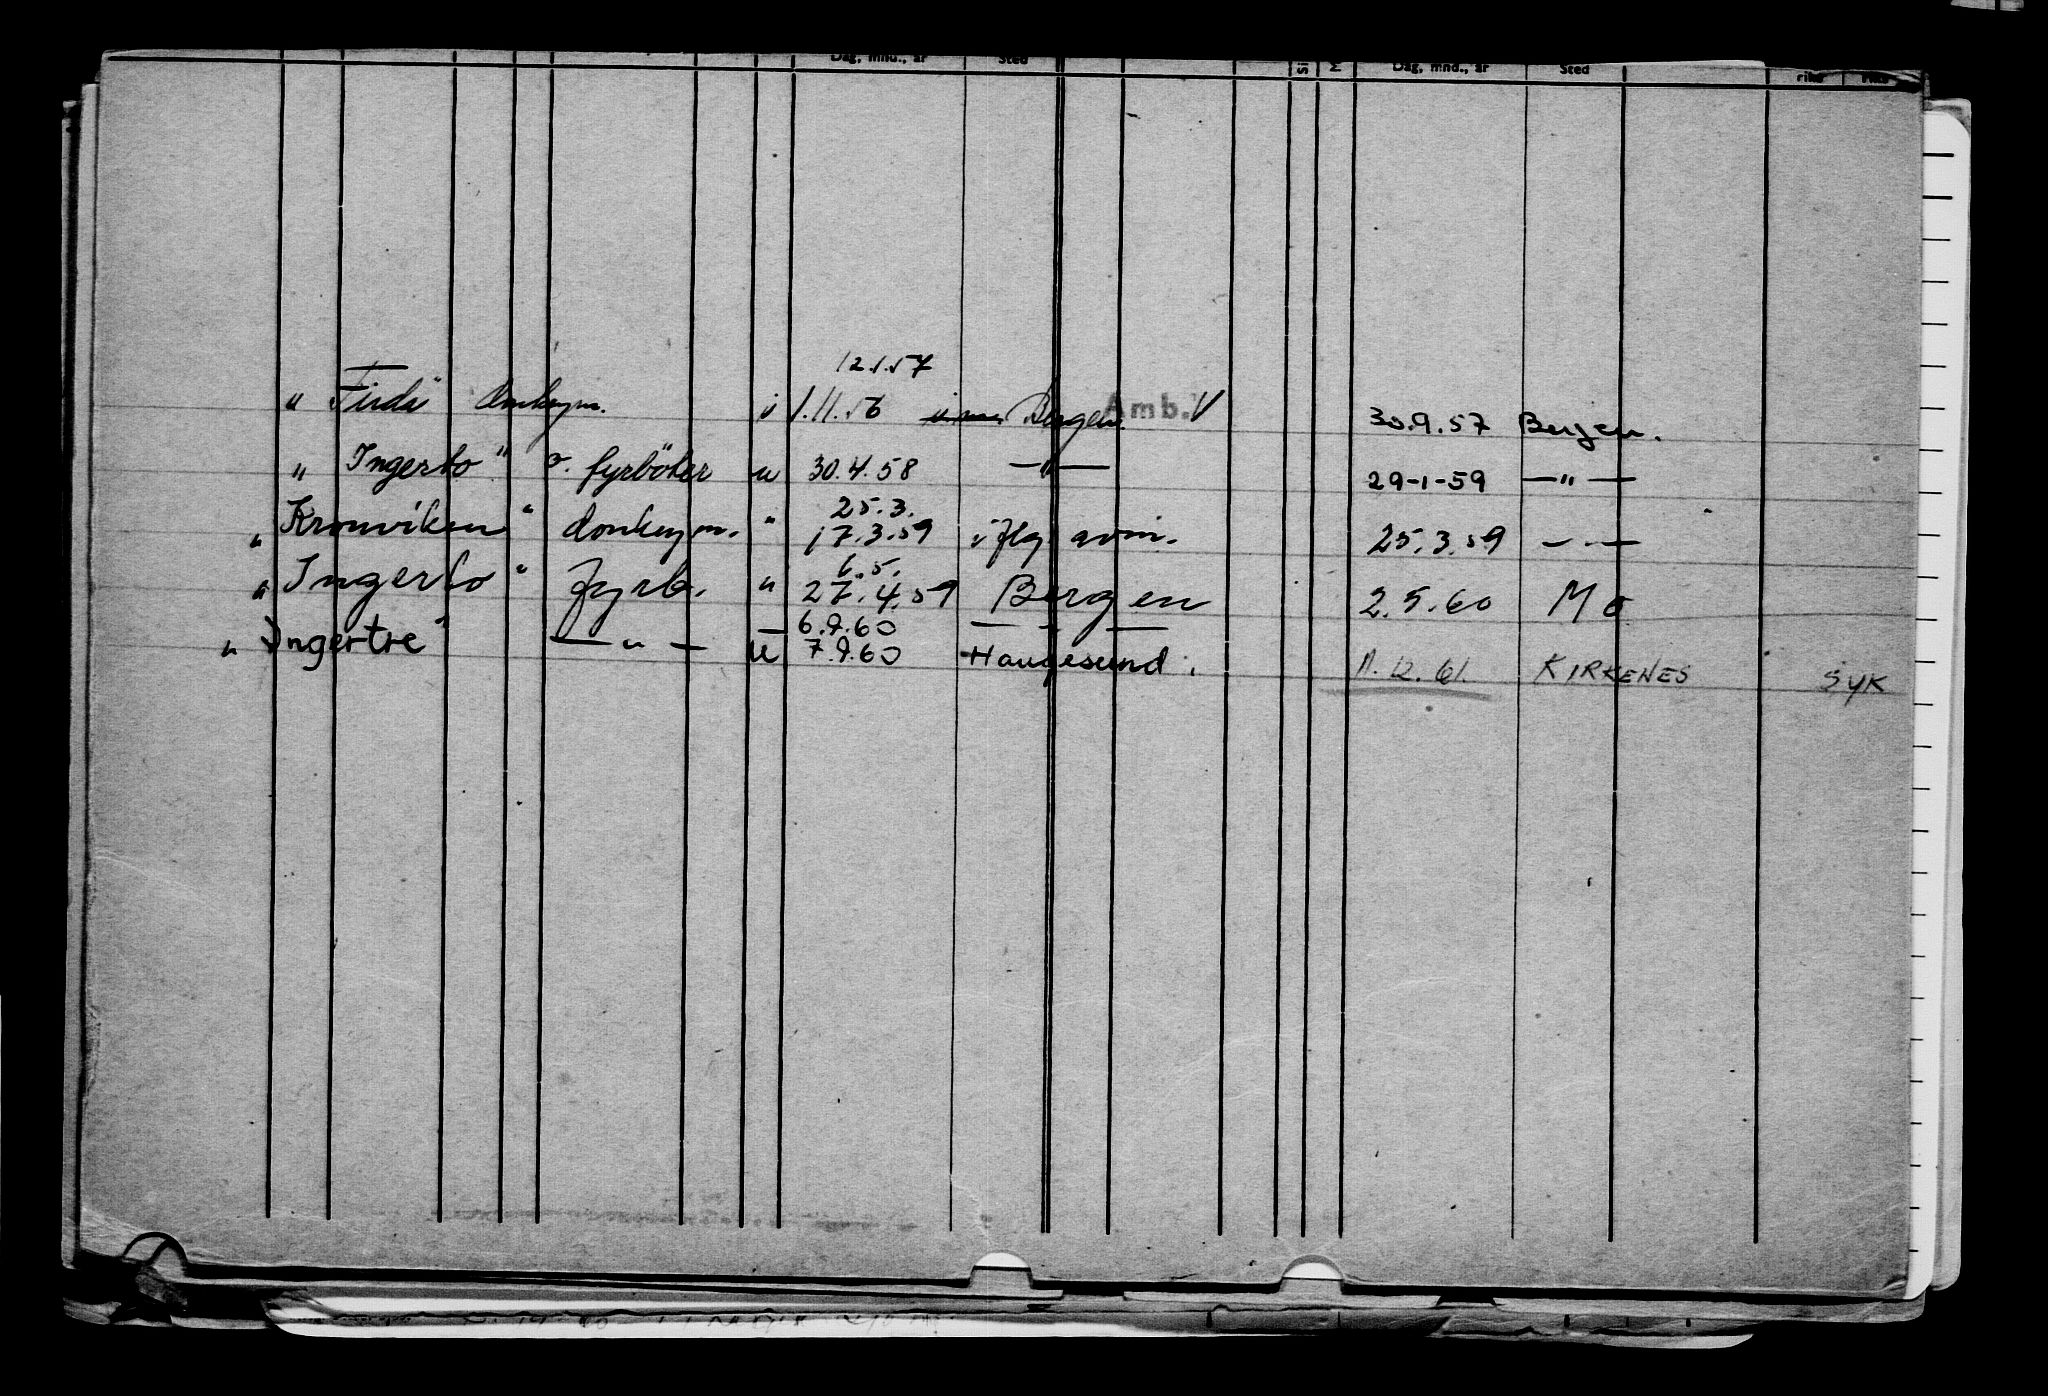 Dag, mnd., år Sted Dag, mnd., år Sted rike rike
12.1.57
" Firda" donkeym. u 1.11.56 Bergen. Amb. V 30.9.57 Bergen.
" Ingerto" o. fyrböter u 30.4.58 —"— 29-1-59 —"—
25.3.
" Kronviken" donkeym. " 17.3.59 iflg avm. 25.3.59 —"—
6.5.
" Ingerto" Fyrb. u 27.4.59 Bergen 2.5.60 Mo
6.9.60 — " —
" Ingertre" — " — u 7.9.60 Haugesund. 11.12.61. KIRKENES SYK